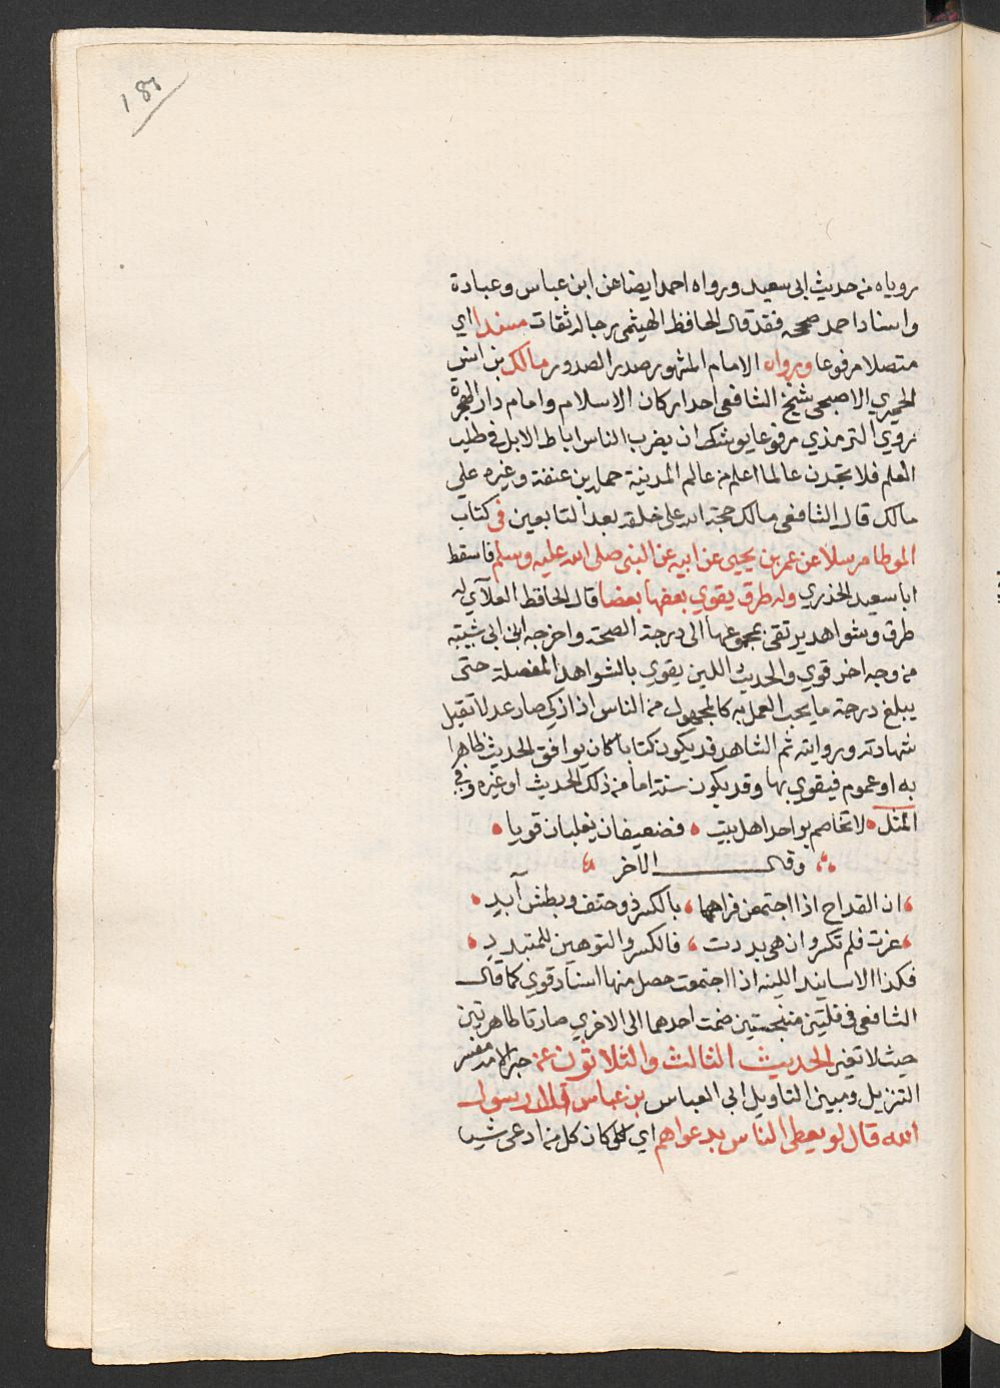 186
روياه من حديث ابي سعيد ورواه احمد ايضا عن ابن عباس وعبادة
واسناد احمد صححه فقد قال الحافظ الهيثمي رجاله ثقات مسندا اي
متصلا مرفوعا ورواه الامام المشهور صدر الصدور مالك بن انس
الحميري الاصبحي شيخ الشافعي احد اركان الاسلام وامام دار الهجرة
روي الترمذي مرفوعا يوشك ان يضرب الناس اباط الابل في طلب
العلم فلا تجدن عالما اعلم من عالم المدينة حمله بن عنفنة وغيره علي
مالك قال الشافعي مالك حجة الله علي خلقه بعد التابعين في كتاب
الموطا مرسلا عن عمر بن يحيي عن ابيه عن النبي صلي الله عليه وسلم فاسقط
ابا سعيد الخذري وله طرق يقوي بعضها بعضا قال الحافظ العلآي له
طرق وشواهد يرتقي بمجموعها الي درجة الصحة واخرجه ابن ابي شيبة
من وجه اخر قوي والحديث اللين يقوي بالشواهد المفصلة حتي
يبلغ درجة ما يجب العمل به كالمجهول من الناس اذا زكي صار عدلا تقبل
شهادته وروايته ثم الشاهد قد يكون كتابا كان يوافق الحديث ظاهرا
به او عموم فيقوي بها وقد يكون سنة اما من ذلك الحديث او غيره وفي
المثل لا تخاصم بواحد اهل بيت فضعيفان يغلبان قويا
وقال الاخر
ان القداح اذا اجتمعن فرامها بالكسر ذو حنف وبطش آبيد
عزت فلم تكسر وان هي بددت فالكسر والتوهين للمتبدد
فكذا الاسانيد اللينه اذا اجتمعت حصل منها اسناد قوي كما قال
الشافعي في قلتين متنجستين ضمت احدهما الي الاخري صارتا طاهرتين
حيث لا تغير الحديث الثالث والثلاثون عن حبر الامة مفسر
التنزيل ومبين التاويل ابي العباس بن عباس قال ان رسول
الله قال لو يعطي الناس بدعواهم اي كل كان كل من ادعي شيا